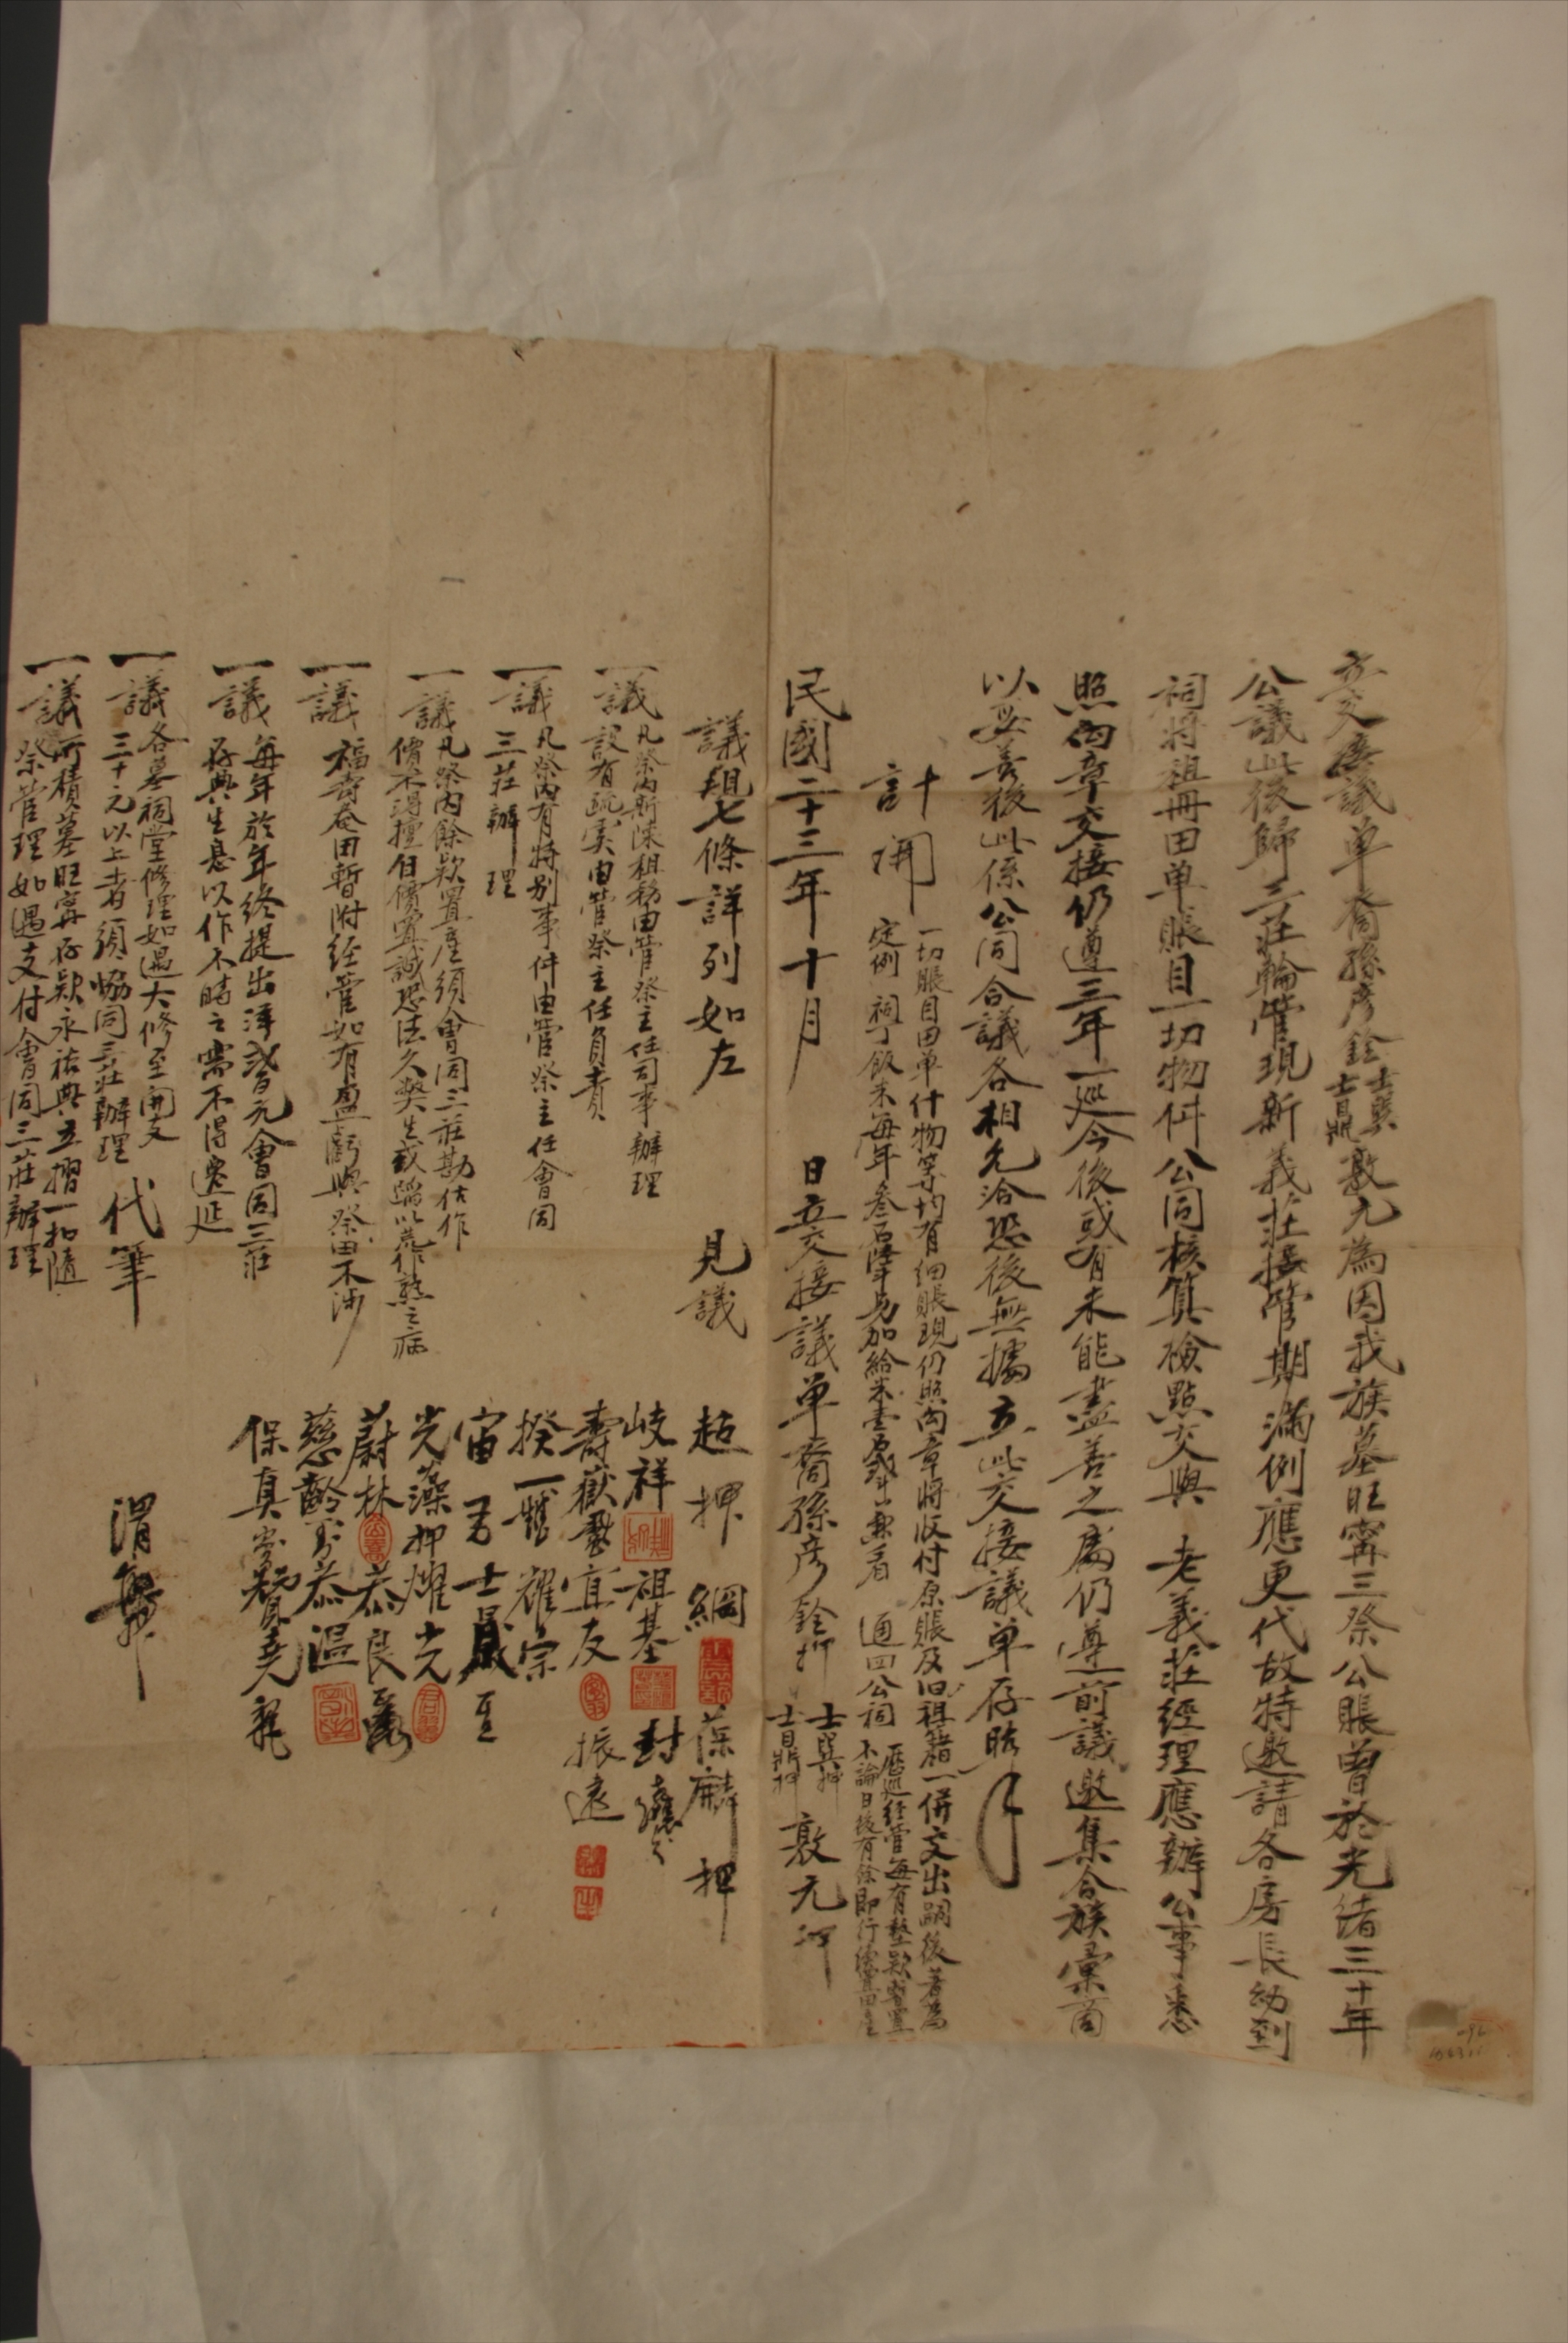 立交接議单裔孫彥銓士巽士鼎敦元為因我族墓旺甯三祭公賬曾於光緒三十年
公議此後歸三莊輪管現新義莊接管期滿例應更代故特邀請各房長幼到
祠將祖冊田单賬目一切物件公同核算檢點交與 老義莊經理應辦公事悉
照向章交接仍遵三年一巡今後或有未能盡善之處仍遵前議邀集合族彙商
以妥善後此係公同合議各相允洽恐後無據立此交接議单存照
計開
一切賬目田单什物等均有细賬現仍照向章將收付原賬及旧租籍一併交出嗣後著為
定例 祠丁飯米每年叁石 加給米壹 看
通四公祠
歷巡经管每有整款
不論日後有餘即行 置田産
民國二十三年十月 日立交接議单裔孫彥銓押 士巽押 士鼎押 敦元押
議規七條詳列如左
一議 凡祭內新陳租務由管祭主任司事辦理
設有疏 由管祭主任負責
一議 凡祭內有特别事件由管祭主任會同
三莊辦理
一議 凡祭內餘款置産須會同三莊勘估作
價不得擅自價置誠恐法久弊生或蹈以荒作熟之病
一議 福壽菴田暫附经管如有盈虧與祭田不涉
一議 每年於年終提出洋 元會同三莊
存典生息以作不時之需不得遷延
一議 各墓祠堂修理如遇大修至開支
三十元以上者須協同三莊辦理
一議 所積墓旺甯存款永祐典立摺一扣隨
祭管理如遇支付會同三莊辦理
見議 超押 綱 葆麟押
岐祥 祖基 封
壽嶽 宜友 振遠
揆一 耀宗
宙 士晟
光藻押 耀光
蔚林 恭良
慈齡 恭温
保真 堯
代筆 渭